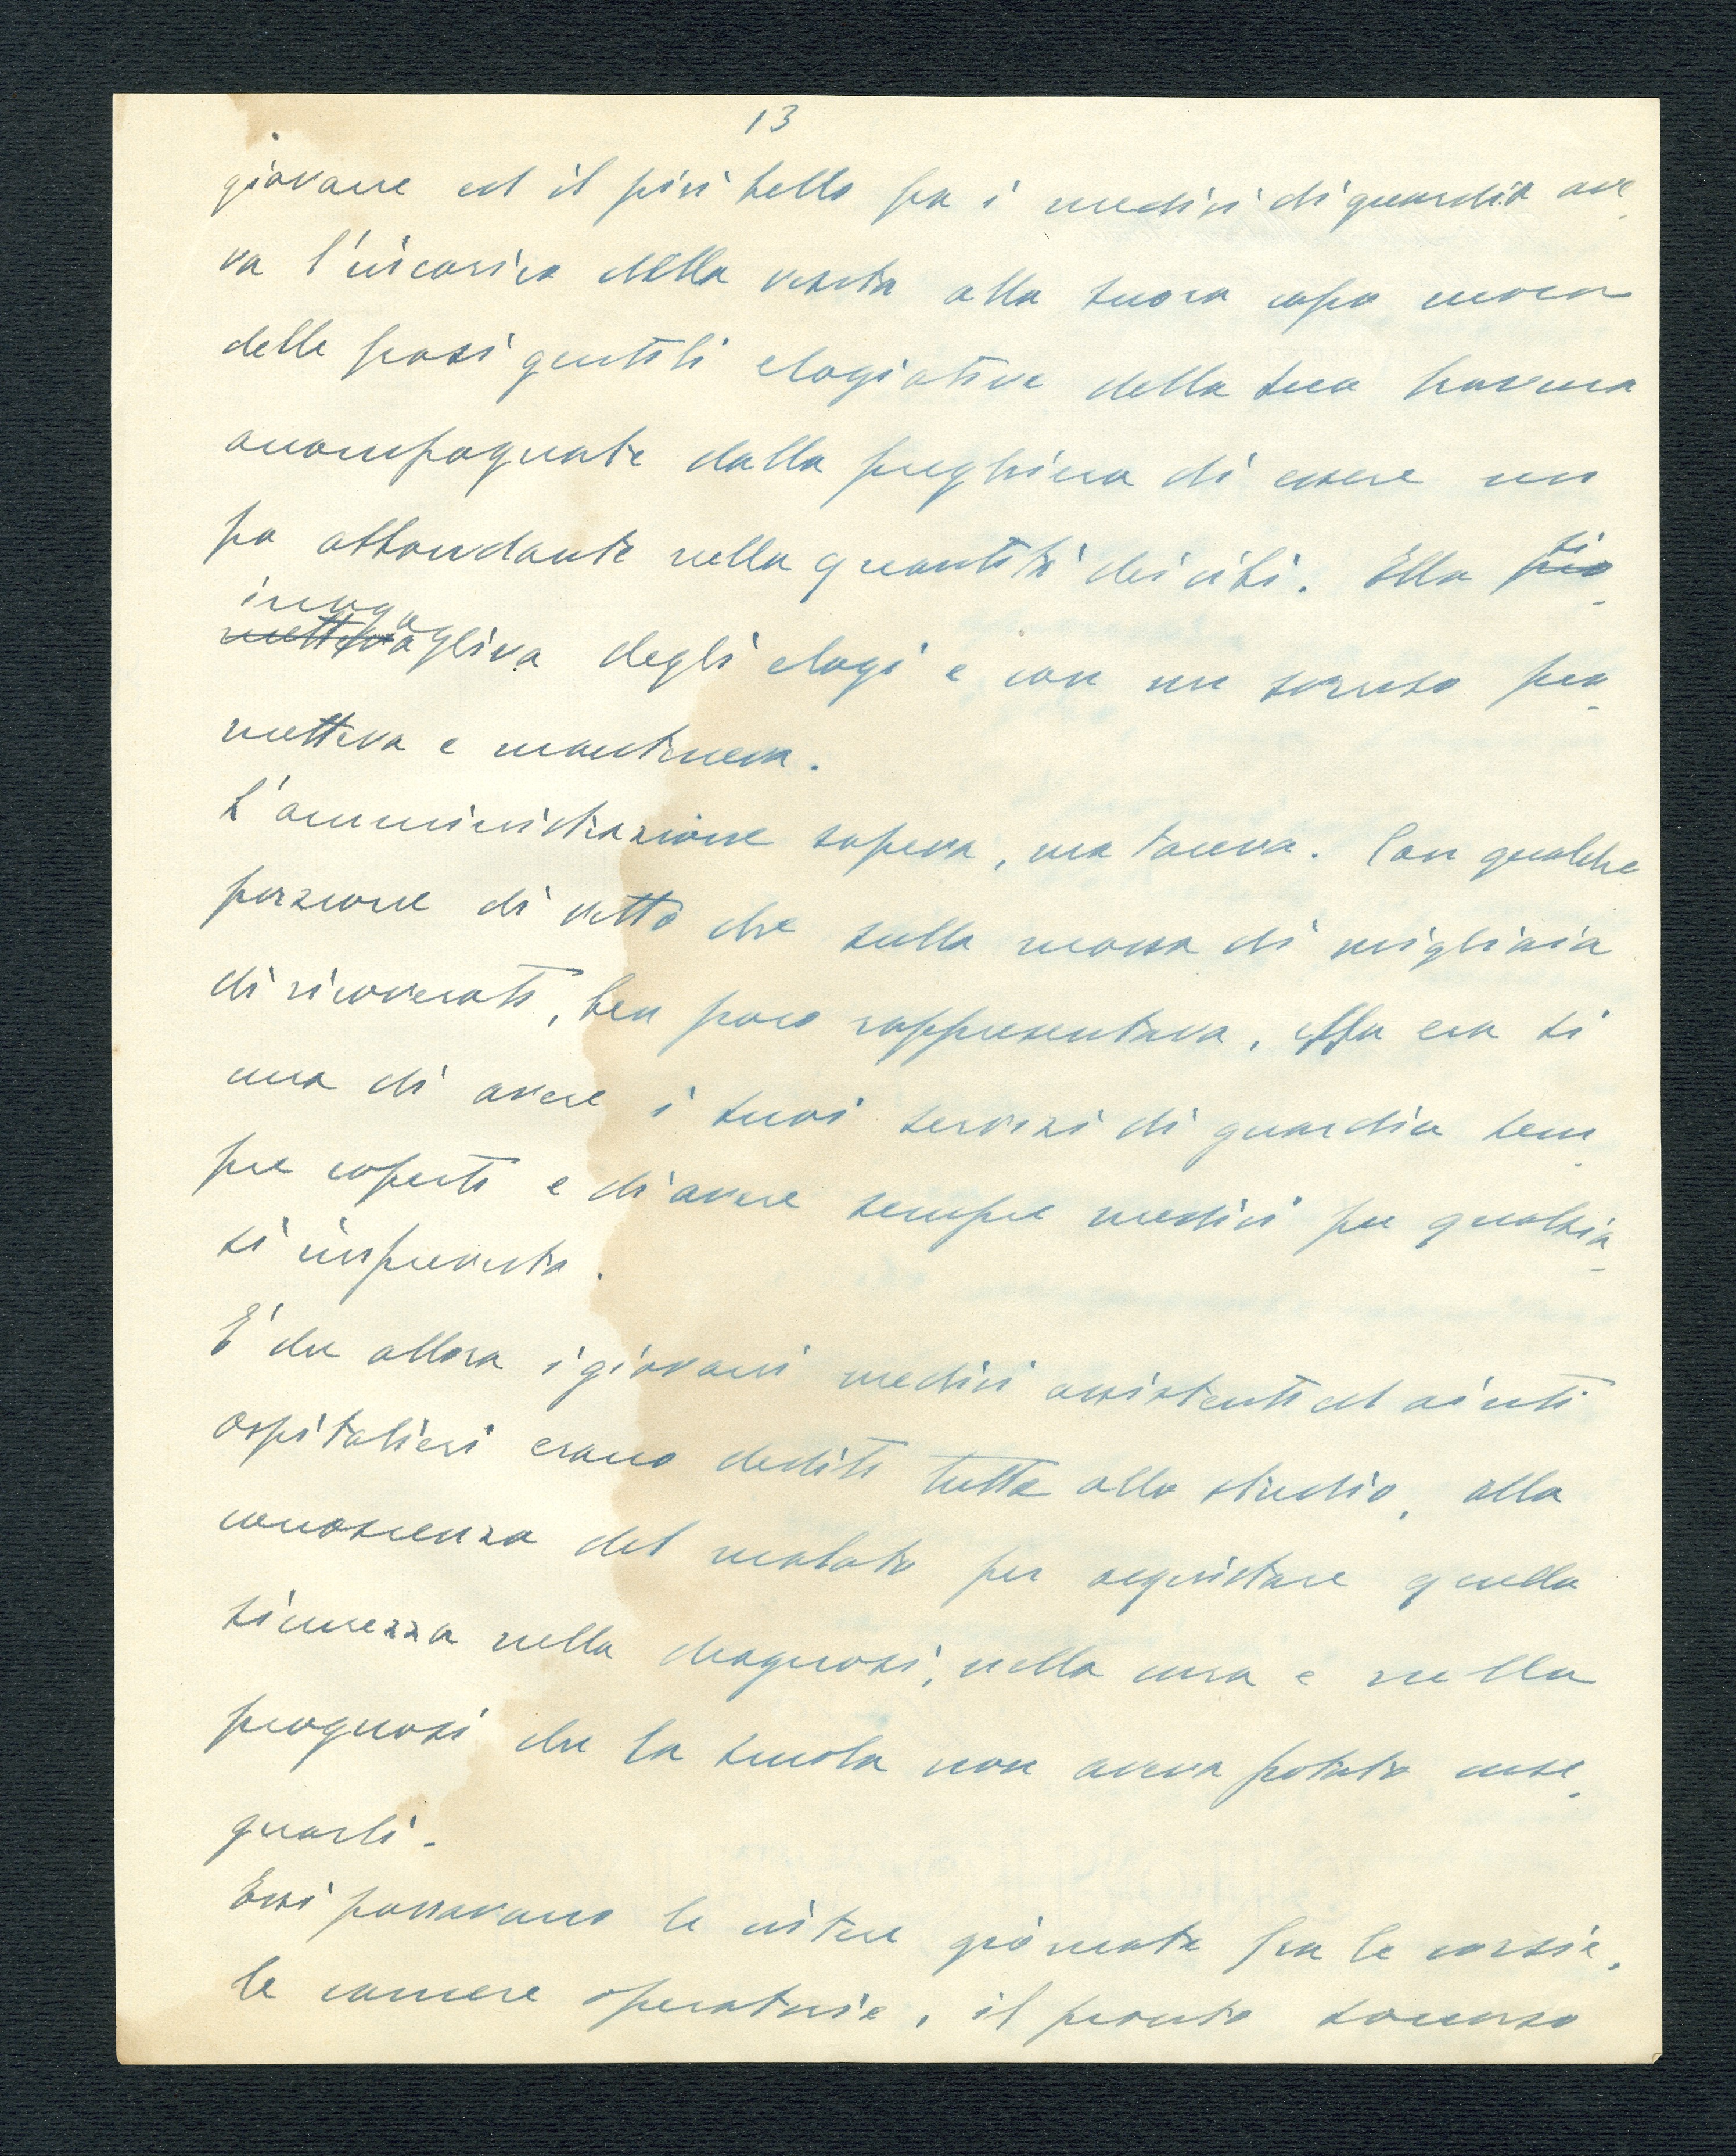 13
giovane ed il più bello fra i medici di guardia ave-
va l'incarico della visita alla suora capo cuoca
delle frasi gentili elogiative della sua bravura
accompagnate dalla preghiera di essere un
po abbondante nella quantità dei cibi. Ella si pro-
inorgo metteva gliva degli elogi e con un sorriso pro-
metteva e manteneva.
L'amministrazione sapeva, ma taceva. Con qualche
porzione di vitto che sulla massa di migliaia
di ricoverati, ben poco rappresentava, essa era si
cura di avere i suoi servizi di guardia sem-
pre coperti e di avere sempre medici per qualsia-
si imprevisto.
E' che allora i giovani medici assistenti ed aiuti
ospitalieri erano dediti tutti allo studio, alla
conoscenza del malato per acquistare quella
sicurezza nella diagnosi, nella cura e nella
prognosi che la scuola non aveva potuto inse-
gnarli.
Essi passavano le intere giornate fra le corsie,
le camere operatorie, il pronto soccorso